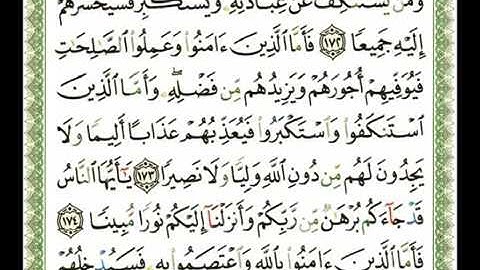 وَمَن يَسْتَنكِفْ عَنْ عِبَادَتِهِۦ وَيَسْتَكْبِرْ فَسَيَحْشُرُهُمْ
إِلَيْهِ جَمِيعًا ۝١٧٢ فَأَمَّا ٱلَّذِينَ ءَامَنُوا۟ وَعَمِلُوا۟ ٱلصَّٰلِحَٰتِ
فَيُوَفِّيهِمْ أُجُورَهُمْ وَيَزِيدُهُم مِّن فَضْلِهِۦ ۖ وَأَمَّا ٱلَّذِينَ
ٱسْتَنكَفُوا۟ وَٱسْتَكْبَرُوا۟ فَيُعَذِّبُهُمْ عَذَابًا أَلِيمًا وَلَا
يَجِدُونَ لَهُم مِّن دُونِ ٱللَّهِ وَلِيًّا وَلَا نَصِيرًا ۝١٧٣ يَٰٓأَيُّهَا ٱلنَّاسُ
قَدْ جَآءَكُم بُرْهَٰنٌ مِّن رَّبِّكُمْ وَأَنزَلْنَآ إِلَيْكُمْ نُورًا مُّبِينًا ۝١٧٤
فَأَمَّا ٱلَّذِينَ ءَامَنُوا۟ بِٱللَّهِ وَٱعْتَصَمُوا۟ بِهِۦ فَسَيُدْخِلُهُمْ